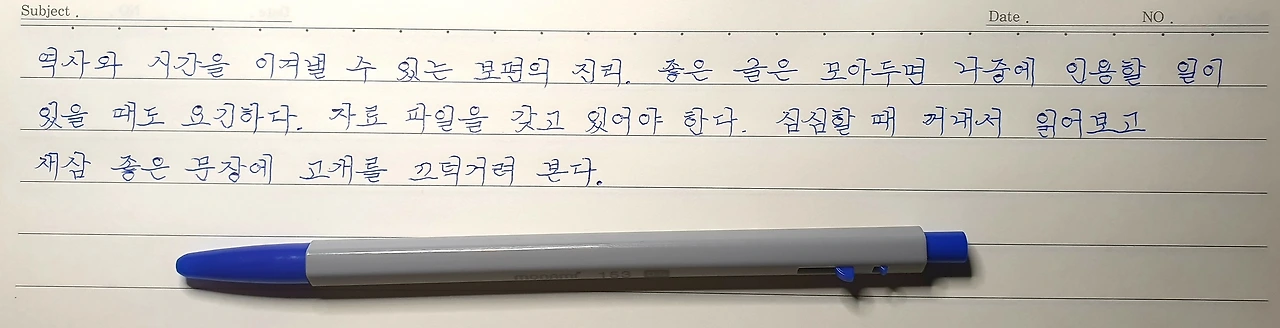 Subject . Date . NO .
역사와 시간을 이겨낼 수 있는 보편의 진리. 좋은 글은 모아두면 나중에 인용할 일이
있을 때도 요긴하다. 자료 파일을 갖고 있어야 한다. 심심할 때 꺼내서 읽어보고
새삼 좋은 문장에 고개를 끄덕거려 본다.
monami 153